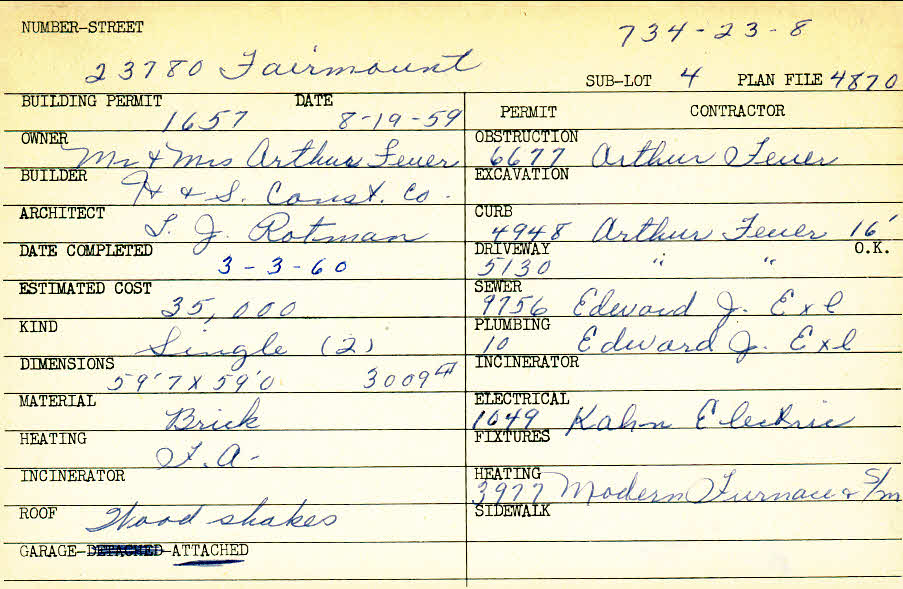 NUMBER-STREET 734-23-8
23780 Fairmount
SUB-LOT 4 PLAN FILE 4870
BUILDING PERMIT DATE
1657 8-19-59
OWNER
Mr & Mrs Arthur Feuer
BUILDER
H & S. Const. Co.
ARCHITECT
S. J. Rotman
DATE COMPLETED
3-3-60
ESTIMATED COST
35,000
KIND
Single (2)
DIMENSIONS
59'7 X 59'0 3009
MATERIAL
Brick
HEATING
F.A.
INCINERATOR
ROOF Wood shakes
GARAGE-DETACHED-ATTACHED
PERMIT CONTRACTOR
OBSTRUCTION
6677 Arthur Feuer
EXCAVATION
CURB
4948 Arthur Feuer 16'
DRIVEWAY O.K.
5130 " "
SEWER
9756 Edward J. Exl
PLUMBING
10 Edward J. Exl
INCINERATOR
ELECTRICAL
1049 Kahn Electric
FIXTURES
HEATING
3977 Modern Furnace & S/m
SIDEWALK